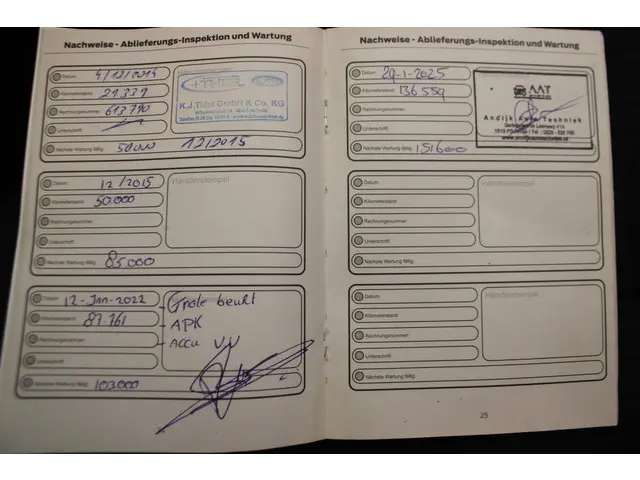 Nachweise - Ablieferungs-Inspektion und Wartung
Datum 4/12/2014
Kilometerstand 21339
Rechnungsnummer 613770
Unterschrift
Nächste Wartung fällig 50000 12/2015
Händlerstempel
K.J.Thiel GmbH & Co. KG
Datum 12/2015
Kilometerstand 50.000
Rechnungsnummer
Unterschrift
Nächste Wartung fällig 85000
Händlerstempel
Datum 12-Jan-2022
Kilometerstand 87.761
Rechnungsnummer
Unterschrift
Nächste Wartung fällig 103000
- Grote beurt
- APK
- Accu VV
Nachweise - Ablieferungs-Inspektion und Wartung
Datum 29-1-2025
Kilometerstand 136559
Rechnungsnummer
Unterschrift
Nächste Wartung fällig 151600
AAT
Andijk Auto Techniek
www.andijkautotechniek.nl
Datum
Kilometerstand
Rechnungsnummer
Unterschrift
Nächste Wartung fällig
Händlerstempel
Datum
Kilometerstand
Rechnungsnummer
Unterschrift
Nächste Wartung fällig
Händlerstempel
25